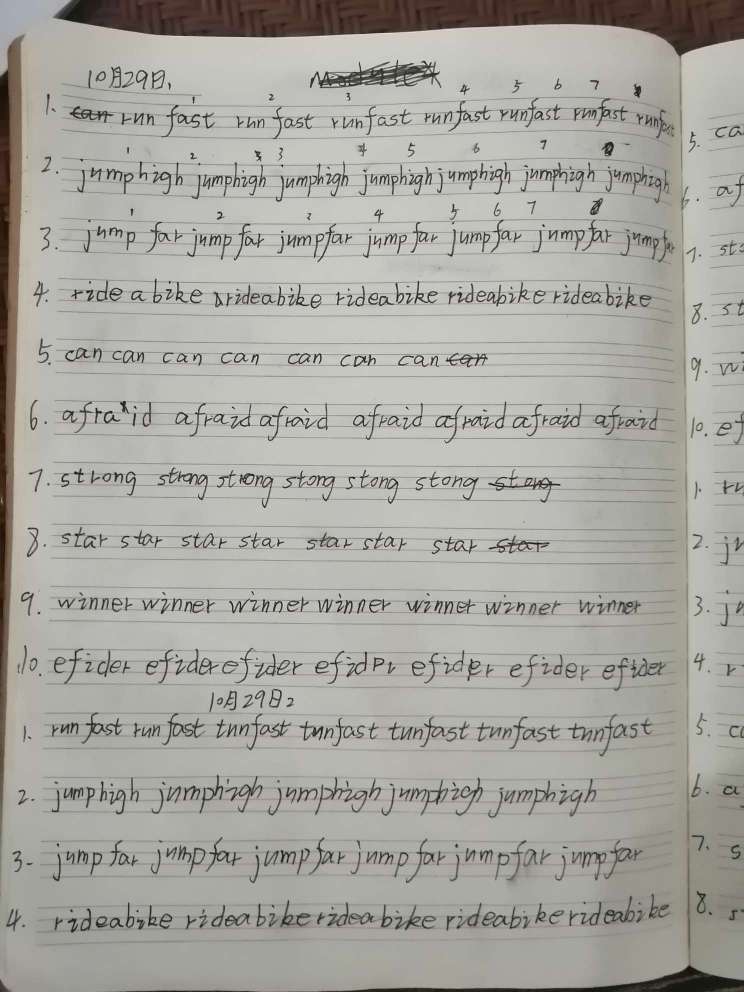 10月29日,
1. can run fast run fast run fast run fast run fast run fast run fast
1 2 3 4 5 6 7
2. jump high jumphigh jumphigh jumphigh jumphigh jumphigh jumphigh
1 2 3 4 5 6 7
3. jump far jump far jump far jump far jump far jump far jump far
1 2 3 4 5 6 7
4. ride a bike rideabike rideabike rideabike rideabike
5. can can can can can can can can
6. afraid afraid afraid afraid afraid afraid afraid
7. strong strong strong stong stong stong stong
8. star star star star star star star star
9. winner winner winner winner winner winner winner
10. efider efider efider efider efider efider efider
10月29日2
1. run fast run fast tunfast tunfast tunfast tunfast tunfast
2. jumphigh jumphigh jumphigh jumphigh jumphigh
3- jump far jump far jump far jump far jump far jump far
4. rideabike rideabike rideabike rideabike rideabike
5. ca
6. af
7. sta
8. st
9. wi
10. ef
1. ru
2. ju
3. ju
4. r
5. ca
6. a
7. s
8. s